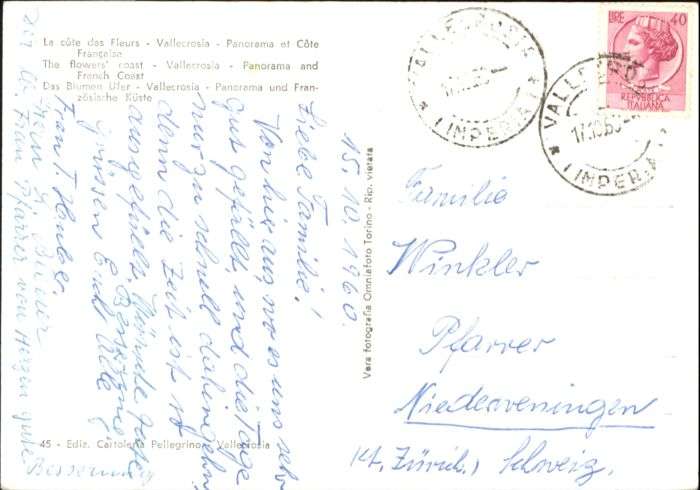 La côte des Fleurs - Vallecrosia - Panorama et Côte
Française
The flowers' coast - Vallecrosia - Panorama and
French Coast
Das Blumen Ufer - Vallecrosia - Panorama und Fran-
zösische Küste
VALLECROSIA
17.10.60
* (IMPERIA) *
VALLECROSIA
17.10.60
* (IMPERIA) *
LIRE 40
REPVBBLICA
ITALIANA
15.10.1960.
Liebe Familie!
Von hier aus, wo es uns sehr
gut gefällt und die Tage
nur zu schnell dahingehn
denn die Zeit ist so
ausgefüllt. Herzliche Grüsse
grüssen Euch Alle
Frau T. Huber
Frau Pfarrer von Herzen gute
Besserung
Vera fotografia Omniafoto Torino - Rip. vietata
Familie
Winkler
Pfarrer
Niederweningen
Kt. Zürich.) Schweiz.
45 - Ediz. Cartoleria Pellegrino - Vallecrosia